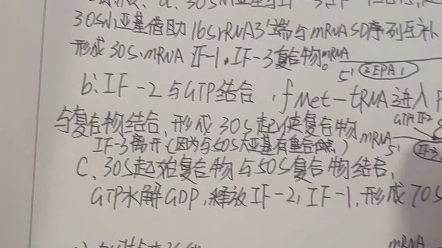 30S小亚基借助16SrRNA3'端与mRNA SD序列互补
形成30S·mRNA IF-1·IF-3复合物
mRNA
5'
b: IF-2与GTP结合,fMet-tRNA进入P
与复合物结合,形成30S起始复合物
mRNA
IF-3离开(因为与50S大亚基有重合
C、30S起始复合物与50S复合物结合,
GTP水解GDP,释放IF-2,IF-1,形成70S
mRNA